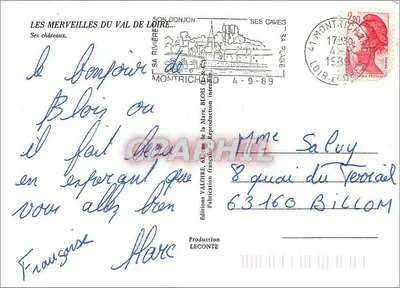 LES MERVEILLES DU VAL DE LOIRE...
Ses châteaux.
SA RIVIÈRE
SON DONJON
SES CAVES
SA PLAGE
MONTRICHARD 4-9-89
41 MONTRICHARD
17H
4-9
1989
LOIR-ET-CHER
2,20
le bonjour de
Blois ou
il fait beau
en esperant que
vous allez bien
Françoise Marc
Editions VALOIRE, rue de la Mare, BLOIS
Reproduction interdite
CARTEPHIL
Mme Salvy
8 quai du Terrail
63160 BILLOM
Production
LECONTE